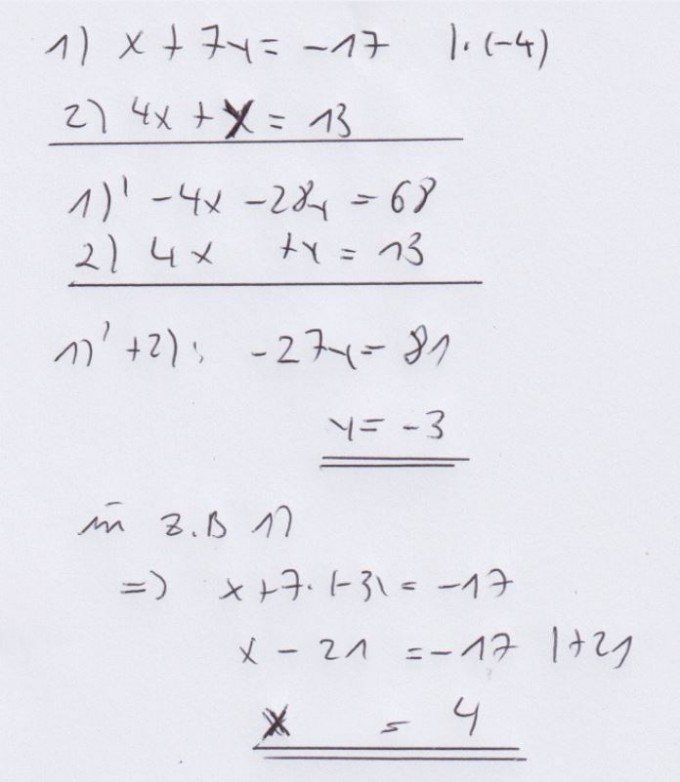 1) x + 7y = -17 | · (-4)
2) 4x + y = 13
1)' -4x -28y = 68
2) 4x +y = 13
1)' +2): -27y = 81
y = -3
in z.B 1)
=> x + 7 · (-3) = -17
x - 21 = -17 | +21
x = 4